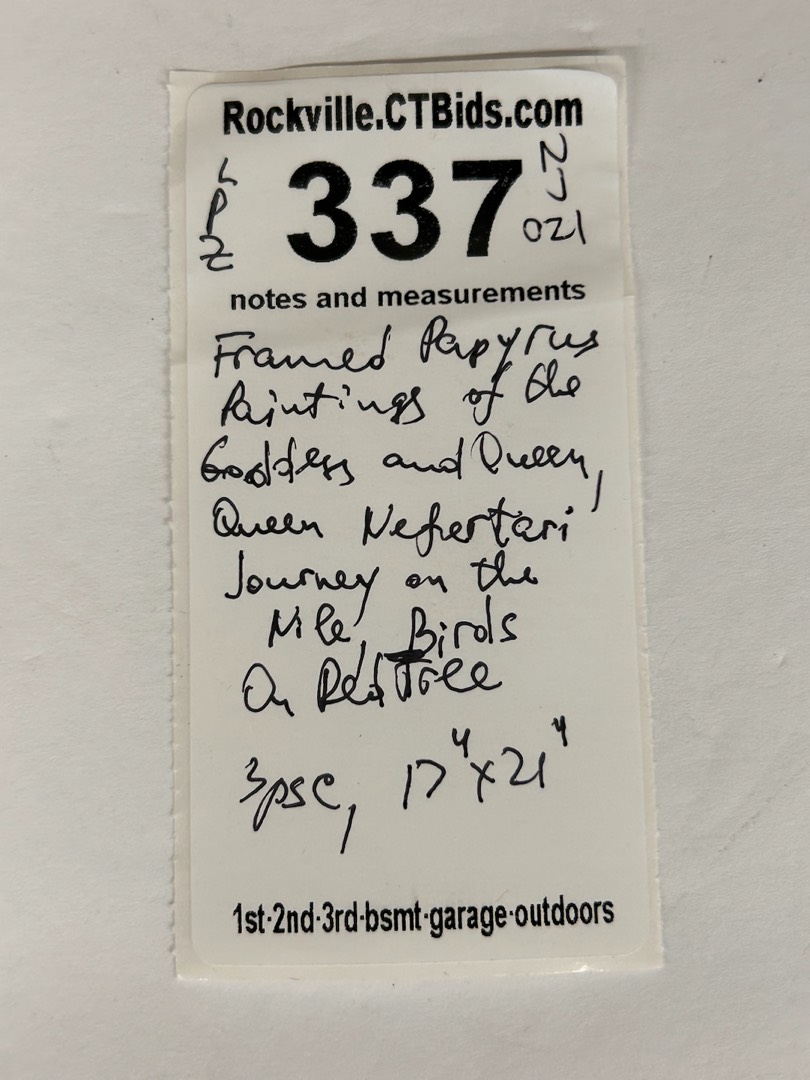 Rockville.CTBids.com
337
notes and measurements
Framed Papyrus
Paintings of the
Goddess and Queen,
Queen Nefertari
Journey on the
Nile, Birds
On Red Tree
3psc, 17"x21"
1st·2nd·3rd·bsmt·garage·outdoors